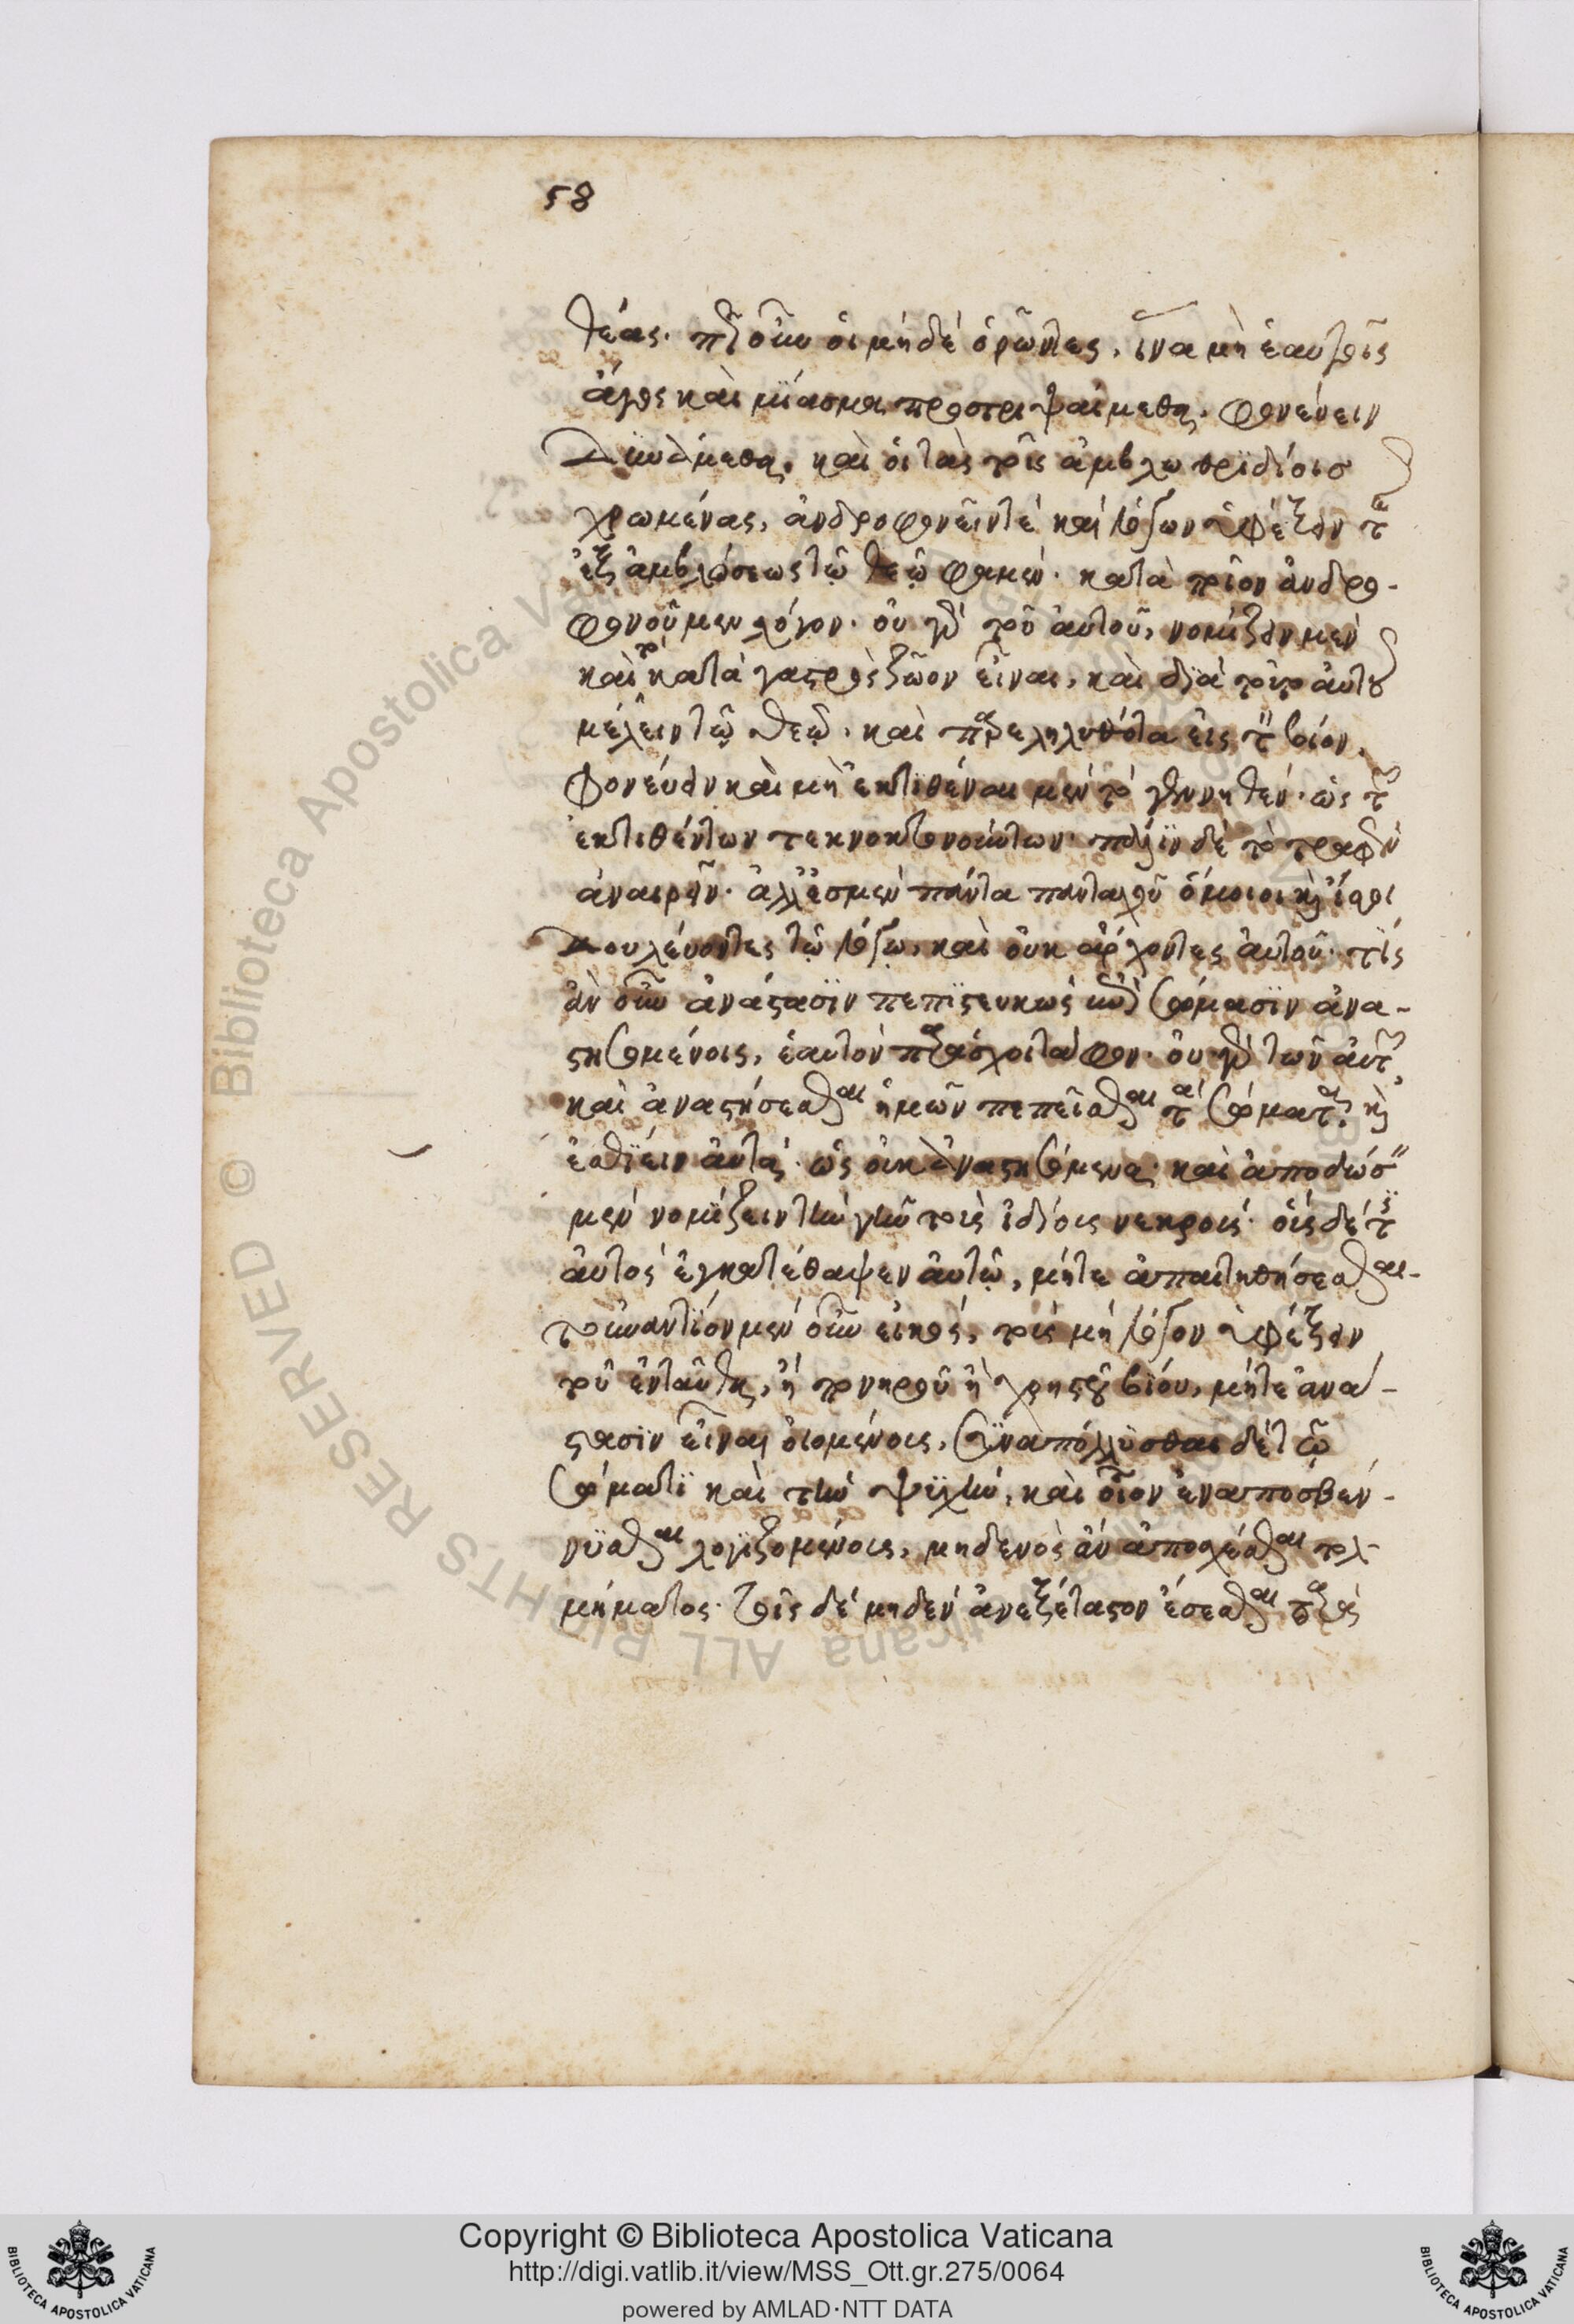 58
θέας. πῶς οὖν οἱ μηδὲ ὁρῶντες, ἵνα μὴ ἑαυτοῖς
ἄγος καὶ μίασμα προστριψαίμεθα. φονεύειν
δυνάμεθα. καὶ οἱ τὰς τοῖς ἀμβλωθριδίοις
χρωμένας, ἀνδροφονεῖν τέ καὶ λόγον ὑφέξειν τῆς
ἐξαμβλώσεως τῷ θεῷ φαμεν. κατὰ ποῖον ἀνδρο-
φονοῦμεν λόγον. οὐ γὰρ τοῦ αὐτοῦ, νομίζειν μὲν
καὶ τὸ κατὰ γαστρὸς ζῶον εἶναι, καὶ διὰ τοῦτο αὐτοῦ
μέλειν τῷ θεῷ. καὶ παρεληλυθότα εἰς τὸν βίον,
φονεύειν καὶ μὴ ἐκτιθέναι μὲν τὸ γεννηθέν. ὡς τῶν
ἐκτιθέντων τεκνοκτονούντων. πάλιν δὲ τὸ τραφὲν
ἀναιρεῖν. ἀλλ' ἐσμὲν πάντα πανταχοῦ ὅμοιοι καὶ ἴσοι
δουλεύοντες τῷ λόγῳ, καὶ οὐκ ἄρχοντες αὐτοῦ. τίς
ἂν οὖν ἀνάστασιν πεπιστευκὼς ἐπὶ σώμασιν ἀνα-
στησομένοις, ἑαυτὸν παράσχοι τάφον. οὐ γὰρ τῶν αὐτῶν
καὶ ἀναστήσεσθαι ἡμῶν πεπεῖσθαι τὰ σώματα, καὶ
ἐσθίειν αὐτὰ. ὡς οὐκ ἀναστησόμενα. καὶ ἀποδώσειν
μὲν νομίζειν τὴν γῆν τοὺς ἰδίους νεκρούς. οὓς δέ τις
αὐτὸς ἐγκατέθαψεν αὐτῷ, μήτε ἀπαιτηθήσεσθαι.
τοὐναντίον μὲν οὖν εἰκὸς, τοὺς μὴ λόγον ὑφέξειν
τοῦ ἐνταῦθα, ἢ πονηροῦ ἢ χρηστοῦ βίου, μήτε ἀνά-
στασιν εἶναι οἰομένους, συναπόλλυσθαι δὲ τῷ
σώματι καὶ τὴν ψυχὴν, καὶ οἷον ἐναποσβέν-
νυσθαι λογιζομένους, μηδενὸς ἂν ἀποσχέσθαι τολ-
μήματος. τοῖς δὲ μηδὲν ἀνεξέταστον ἔσεσθαι παρὰ
Copyright © Biblioteca Apostolica Vaticana
http://digi.vatlib.it/view/MSS_Ott.gr.275/0064
powered by AMLAD·NTT DATA